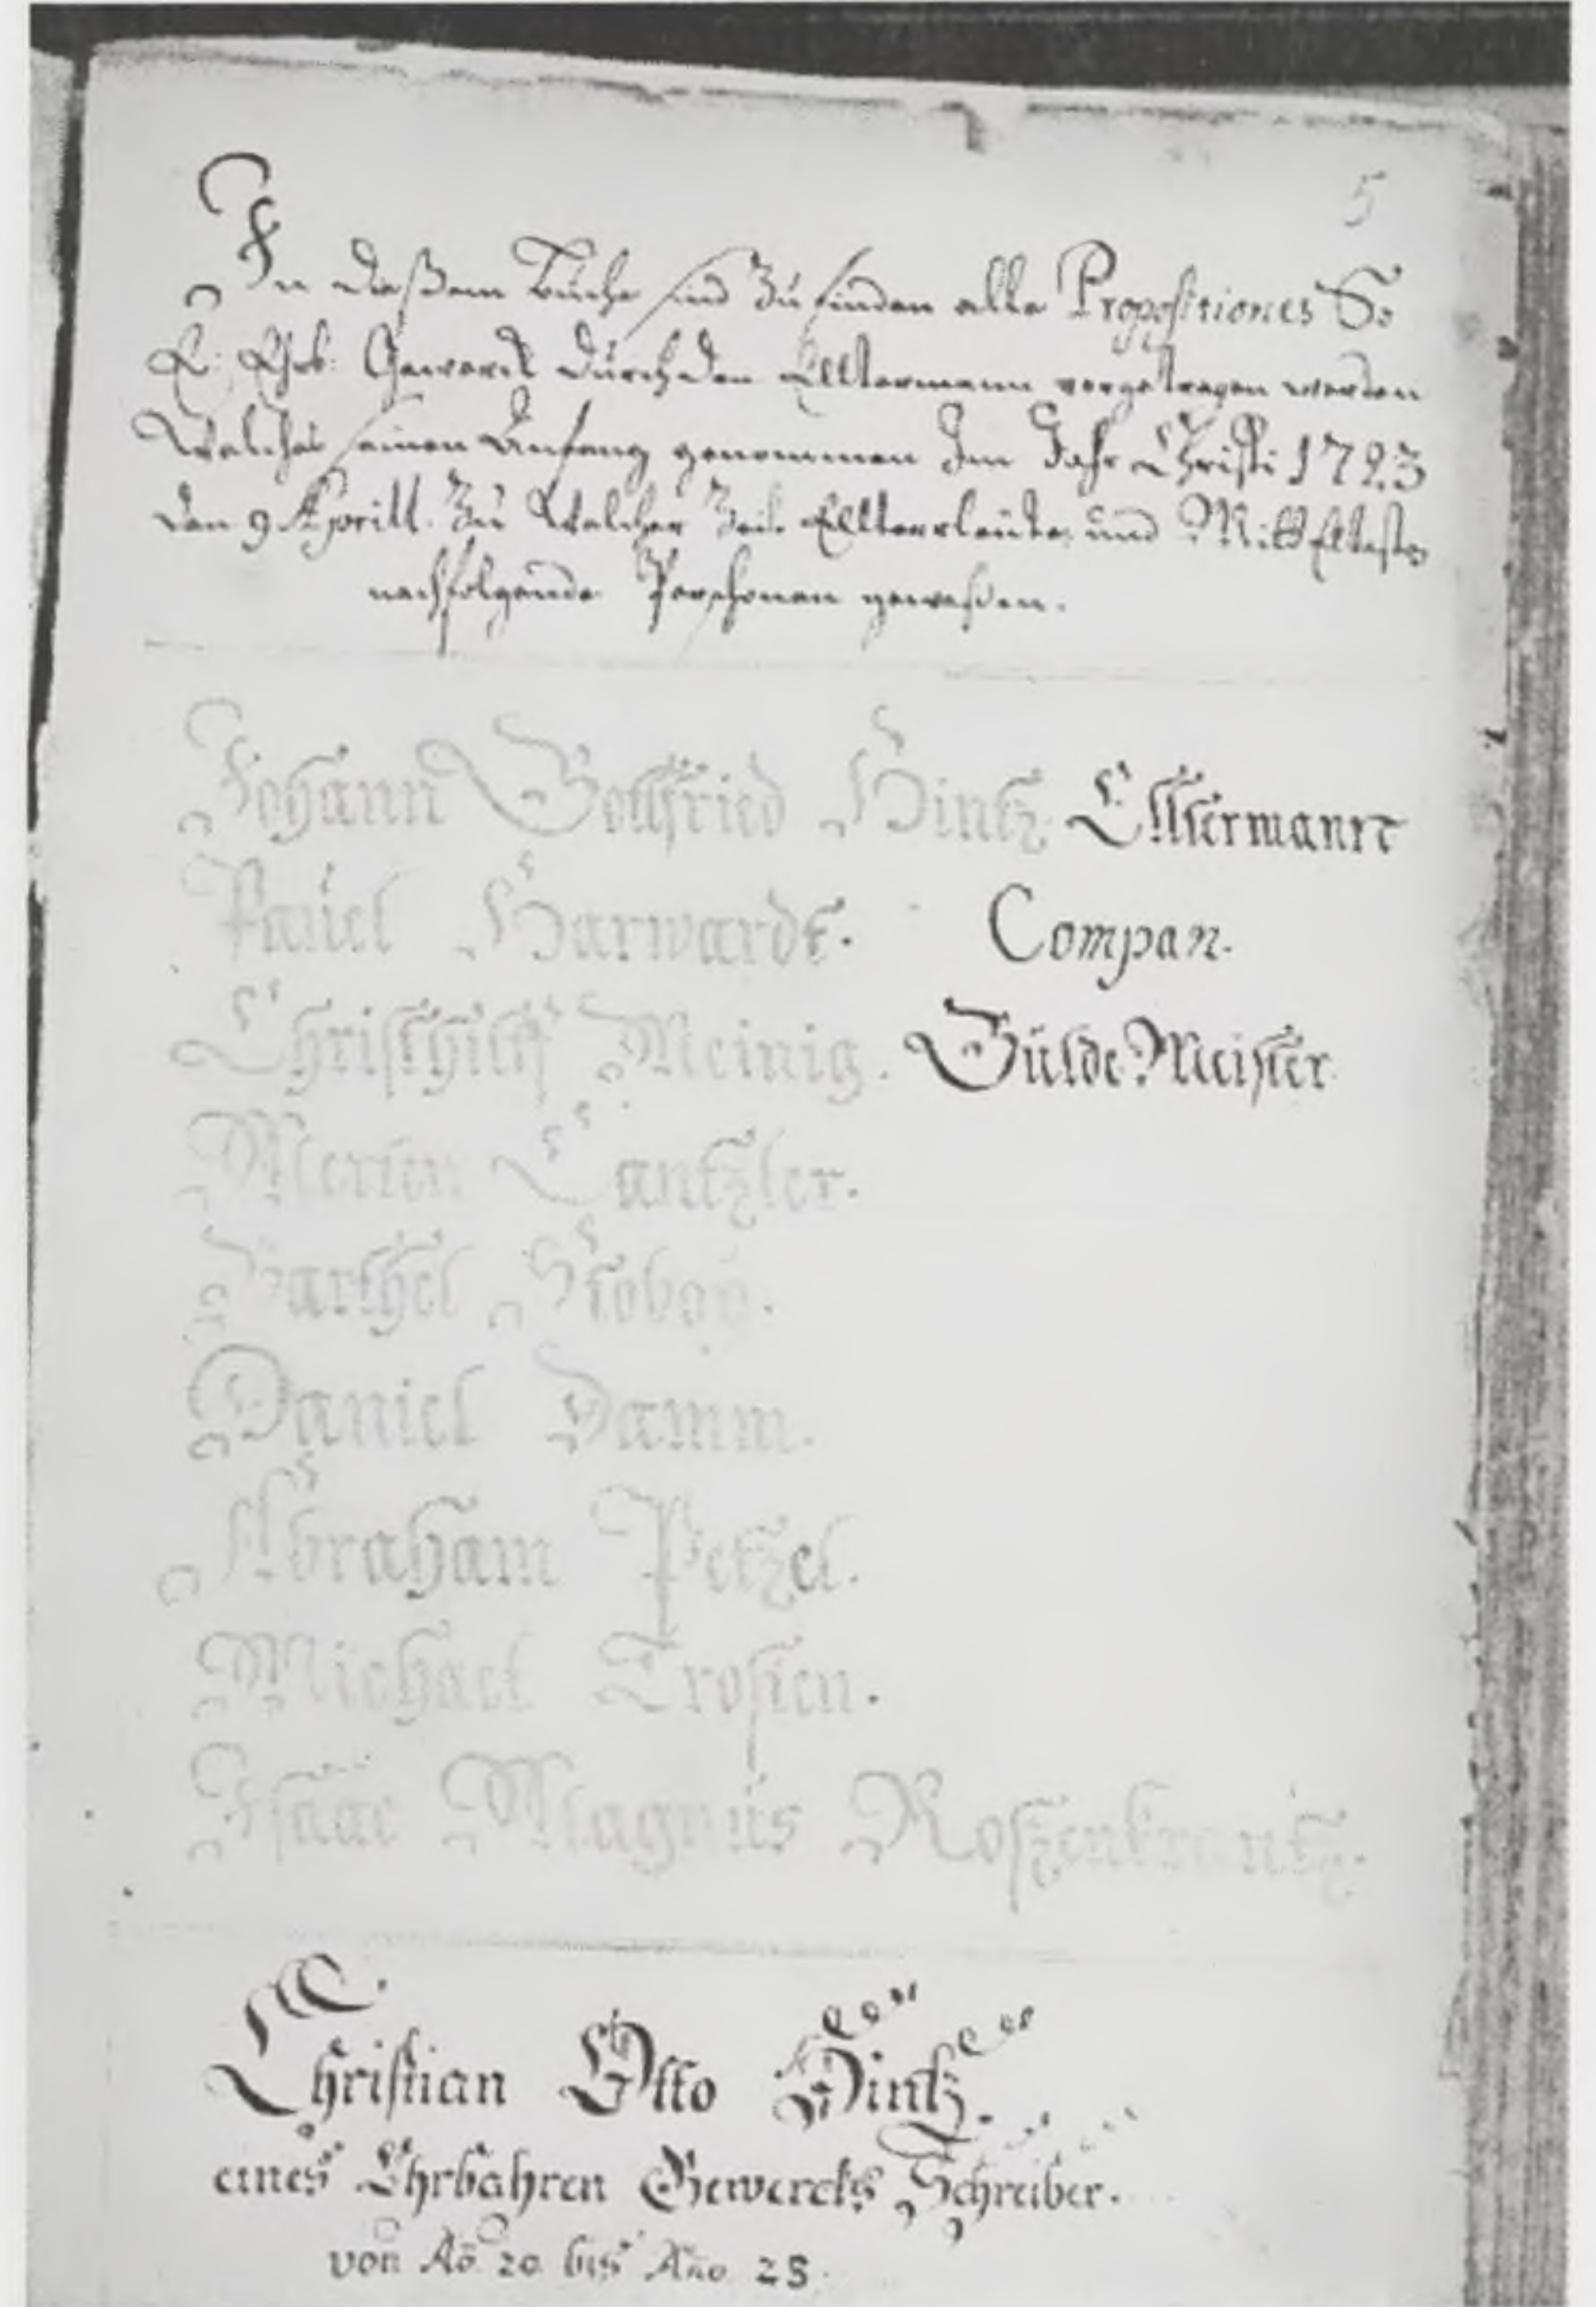 5
In dießem Buche sind zu finden alle Propositiones So
E: Ehrb: Gewerck durch den Elltermann vorgetragen werden
Welches seinen Anfang genommen Im Jahr Christi 1723
den 9 Aprill. Zu Welcher Zeit Ellterleüte und Mitt Elteste
nachfolgende Perschonen geweßen.
Johann Gottfried Hintz Elltermann
Paúel Harwardt. Compan.
Christhilff Meinig. Gülde Meister
Merten Cantzler.
Barthel Stoboy.
Daniel Damm.
Abraham Petzel.
Michael Trosien.
Isaac Magnús Roszenkrantz.
Christian Otto Hintz.
eines Ehrbahren Gewercks Schreiber.
von Aõ. 20 bis Año. 28.